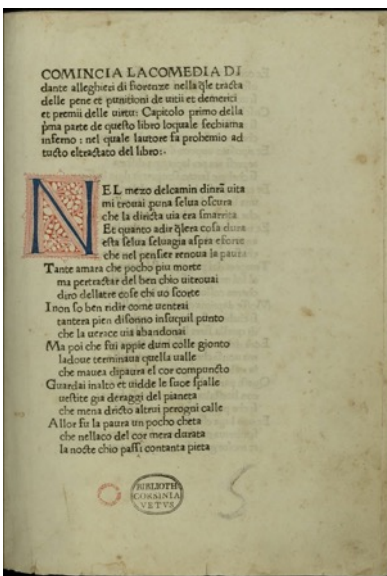 COMINCIA LA COMEDIA DI
dante alleghieri di fiorenze nella q̃le tracta
delle pene et punitioni de uitii et demeriti
et premii delle uirtu: Capitolo primo della
p̃ma parte de questo libro loquale sechiama
inferno : nel quale lautore fa prohemio ad
tucto eltractato del libro:·
NEL mezo delcamin dinr̃a uita
mi trouai p̃una selua oscura
che la diricta uia era smarrita
Et quanto adir q̃lera cosa dura
esta selua seluagia aspra eforte
che nel pensier renoua la paura
Tante amara che pocho piu morte
ma pertractar del ben chio uitrouai
diro dellatre cose chi uo scorte
I non so ben ridir come uentrai
tantera pien disonno insuquil punto
che la uerace uia abandonai
Ma poi che fui appie dum colle gionto
ladoue terminaua quella ualle
che mauea dipaura el cor compuncto
Guardai inalto et uidde le suoe spalle
uestite gia deraggi del pianeta
che mena dricto altrui perogni calle
Allor fu la paura un pocho cheta
che nellaco del cor mera durata
la nocte chio passi contanta pieta
BIBLIOTH
CORSINIA
VETVS